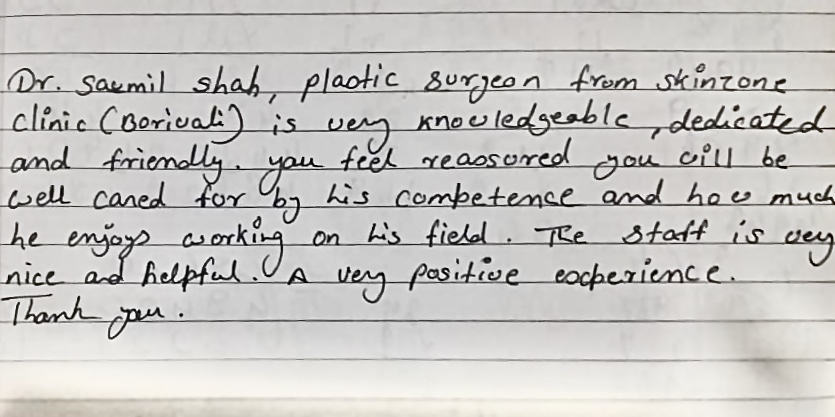 Dr. Saumil shah, plastic surgeon from skinzone
clinic (Borivali) is very knowledgeable, dedicated
and friendly. you feel reassured you will be
well cared for by his competence and how much
he enjoys working on his field. The staff is very
nice and helpful. A very positive experience.
Thank you.